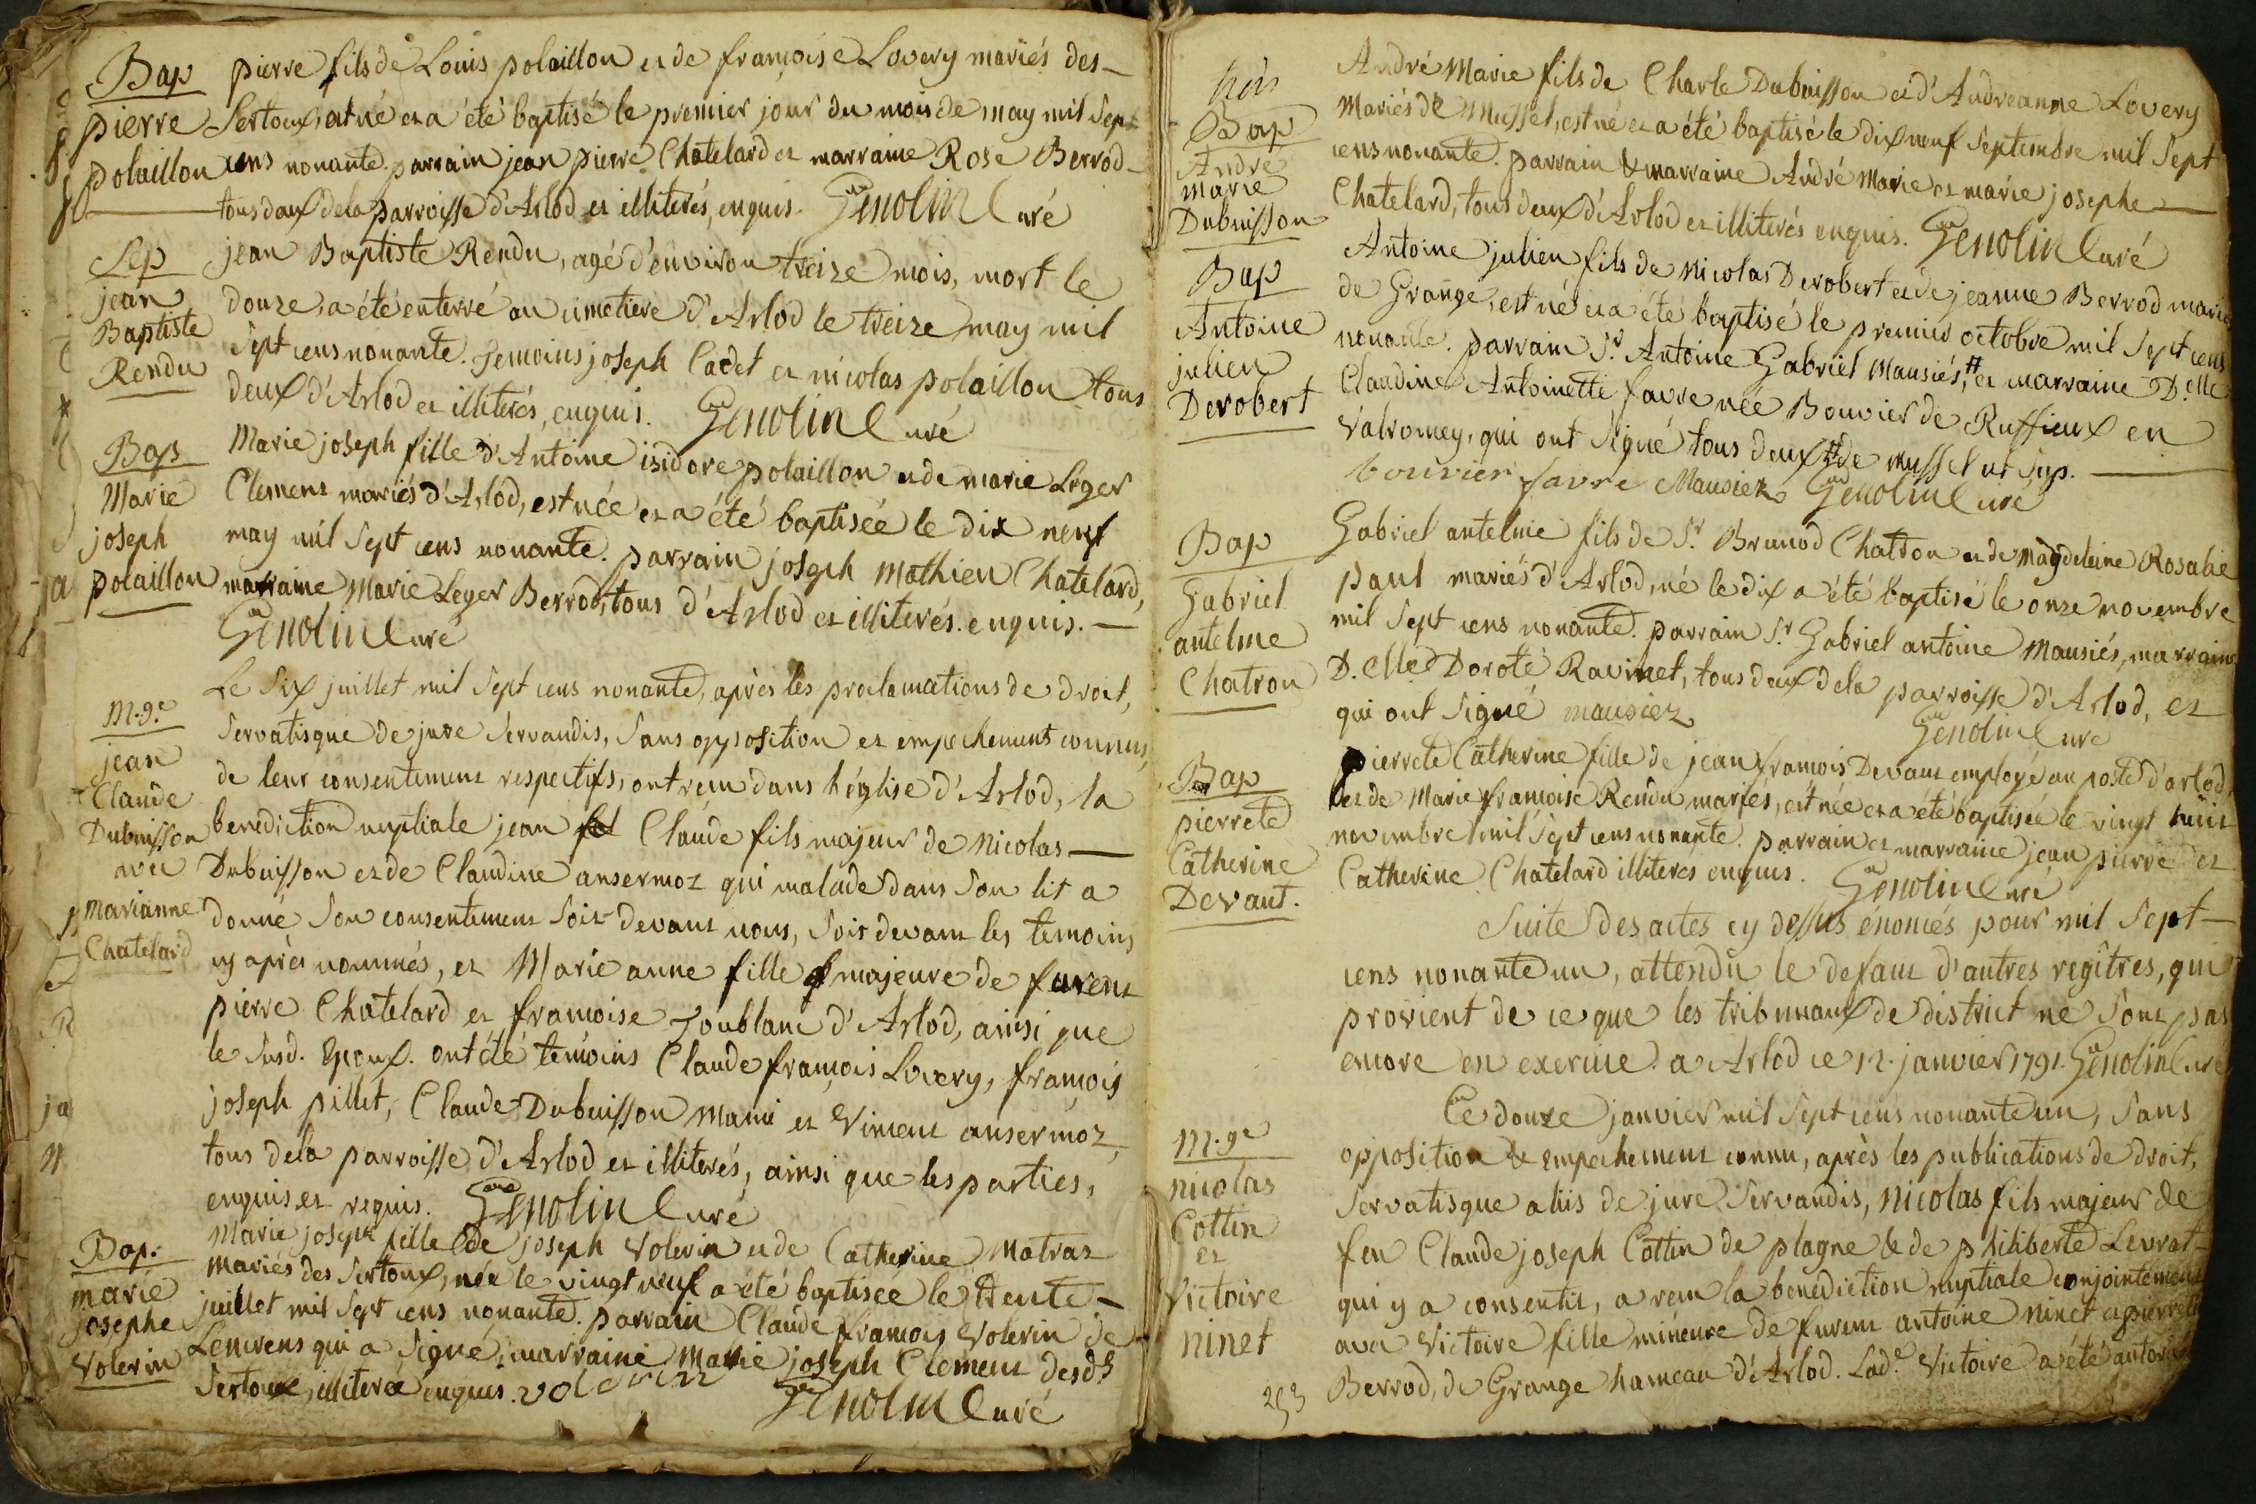 Bap
pierre
polaillon
pierre fils de Louis polaillon et de françoise Lovery mariés des
Sertoux, est né et a été baptisé le premier jour du mois de may mil Sept
cens nonante. parrain jean pierre Chatelard et marraine Rose Berrod
tous deux de la parroisse d'Arlod et illiterés, enquis. Genolin Curé
Sep
jean
Baptiste
Rendu
jean Baptiste Rendu, agé d'environ treize mois, mort le
douze, a été enterré au cimetiere d'Arlod le treize may mil
Sept cens nonante. Temoins joseph Cadet et nicolas polaillon tous
deux d'Arlod et illiterés, enquis. Genolin Curé
Bap
Marie
joseph
polaillon
Marie joseph fille d'Antoine isidore polaillon et de marie Leger
Clement mariés d'Arlod, est née et a été baptisée le dix neuf
may mil Sept cens nonante. parrain joseph Mathieu Chatelard,
marraine Marie Leger Berrod, tous d'Arlod et illiterés. enquis.
Genolin Curé
M.ge
jean
Claude
Dubuisson
avec
Marianne
Chatelard
Le Six juillet mil Sept cens nonante, après les proclamations de droit,
Servatisque de jure Servandis, Sans opposition et empechement connus,
de leur consentement respectifs, ont reçu dans l'église d'Arlod, la
benediction nuptiale jean Claude fils majeur de Nicolas
Dubuisson et de Claudine ansermoz qui malade dans Son lit a
donné Son consentement Soit devant nous, Soit devant les temoins
cy après nommés, et Marie anne fille majeure de furent
pierre Chatelard et françoise Joublanc d'Arlod, ainsi que
le Susd. Epoux. ont été temoins Claude françois Lovery, françois
joseph pillet, Claude Dubuisson Mami et Vincent ansermoz,
tous de la parroisse d'Arlod et illiterés, ainsi que les parties,
enquis et requis. Genolin Curé
Bap.
marie
josephe
Volerin
Marie joseph fille de joseph Volerin et de Catherine Matraz
mariés des Sertoux, née le vingt neuf a été baptisée le trente
juillet mil Sept cens nonante. parrain Claude françois Volerin de
Lencrens qui a Signé, marraine Marie joseph Clement desd.s
Sertoux, illiterée enquis. volerin
Genolin Curé
Bap
André
marie
Dubuisson
André Marie fils de Charle Dubuisson et d'Andreanne Lovery
Mariés de Mussel, est né et a été baptisé le dix neuf Septembre mil Sept
cens nonante. parrain & marraine André Marie et marie josephe
Chatelard, tous deux d'Arlod et illiterés enquis. Genolin Curé
Bap
Antoine
julien
Derobert
Antoine julien fils de Nicolas Derobert et de jeanne Berrod mariés
de Grange, est né et a été baptisé le premier octobre mil Sept cens
nonante. parrain S.r Antoine Gabriel Mausiés, # et marraine D.elle
Claudine Antoinette favre née Bouvier de Ruffieux en
Valromey, qui ont Signé tous deux # de mussel ut Sup.
bouvier favre Mausiez Genolin Curé
Bap
Gabriel
antelme
Chatron
Gabriel antelme fils de S.r Brunod Chatron et de Magdeleine Rosalie
paul mariés d'Arlod, né le dix a été baptisé le onze novembre
mil Sept cens nonante. parrain S.r Gabriel antoine Mausiés, marraine
D.elle Doroté Ravinet, tous deux de la parroisse d'Arlod, et
qui ont Signé mausiez Genolin Curé
Bap
pierrete
Catherine
Devant.
pierrete Catherine fille de jean françois Devant employé au poste d'arlod,
et de Marie françoise Rendu mariés, est née et a été baptisée le vingt huit
novembre mil Sept cens nonante. parrain et marraine jean pierre et
Catherine Chatelard illiterés enquis. Genolin Curé
Suite des actes cy dessus enoncés pour mil Sept
cens nonante un, attendu le defaut d'autres regîtres, qui
provient de ce que les tribunaux de district ne Sont pas
encore en exercice. a Arlod ce 12. janvier 1791. Genolin Curé
M.ge
nicolas
Cottin
et
Victoire
ninet
Ce douze janvier mil Sept cens nonante un, Sans
opposition & empechement connu, après les publications de droit,
Servatisque aliis de jure Servandis, Nicolas fils majeur de
feu Claude joseph Cottin de plagne & de philiberte Levrat
qui y a consentit, a reçu la benediction nuptiale conjointement
avec Victoire fille mineure de furent antoine ninet et pierrete
Berrod, de Grange hameau d'Arlod. Lad.e Victoire a été autorisée
253